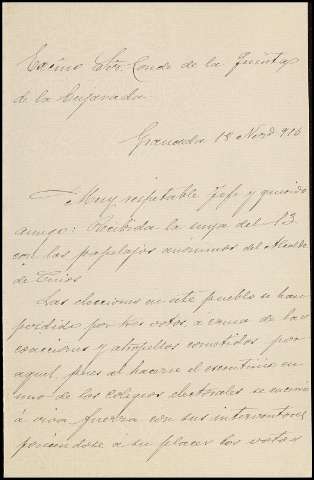 Excmo Sr. Conde de la Quinta
de la Enjarada
Granada 18 Novb 916
Muy respetable Jefe y querido
amigo: Recibida la suya del 13
con los papelajos anónimos del Alcalde
de
Las elecciones en este pueblo se han
perdido por tres votos, á causa de las
coacciones y atropellos cometidos por
aquel, pues al hacerse el escrutinio en
uno de los colegios electorales se encerró
á viva fuerza con sus interventores
poniendose á su placer los votos